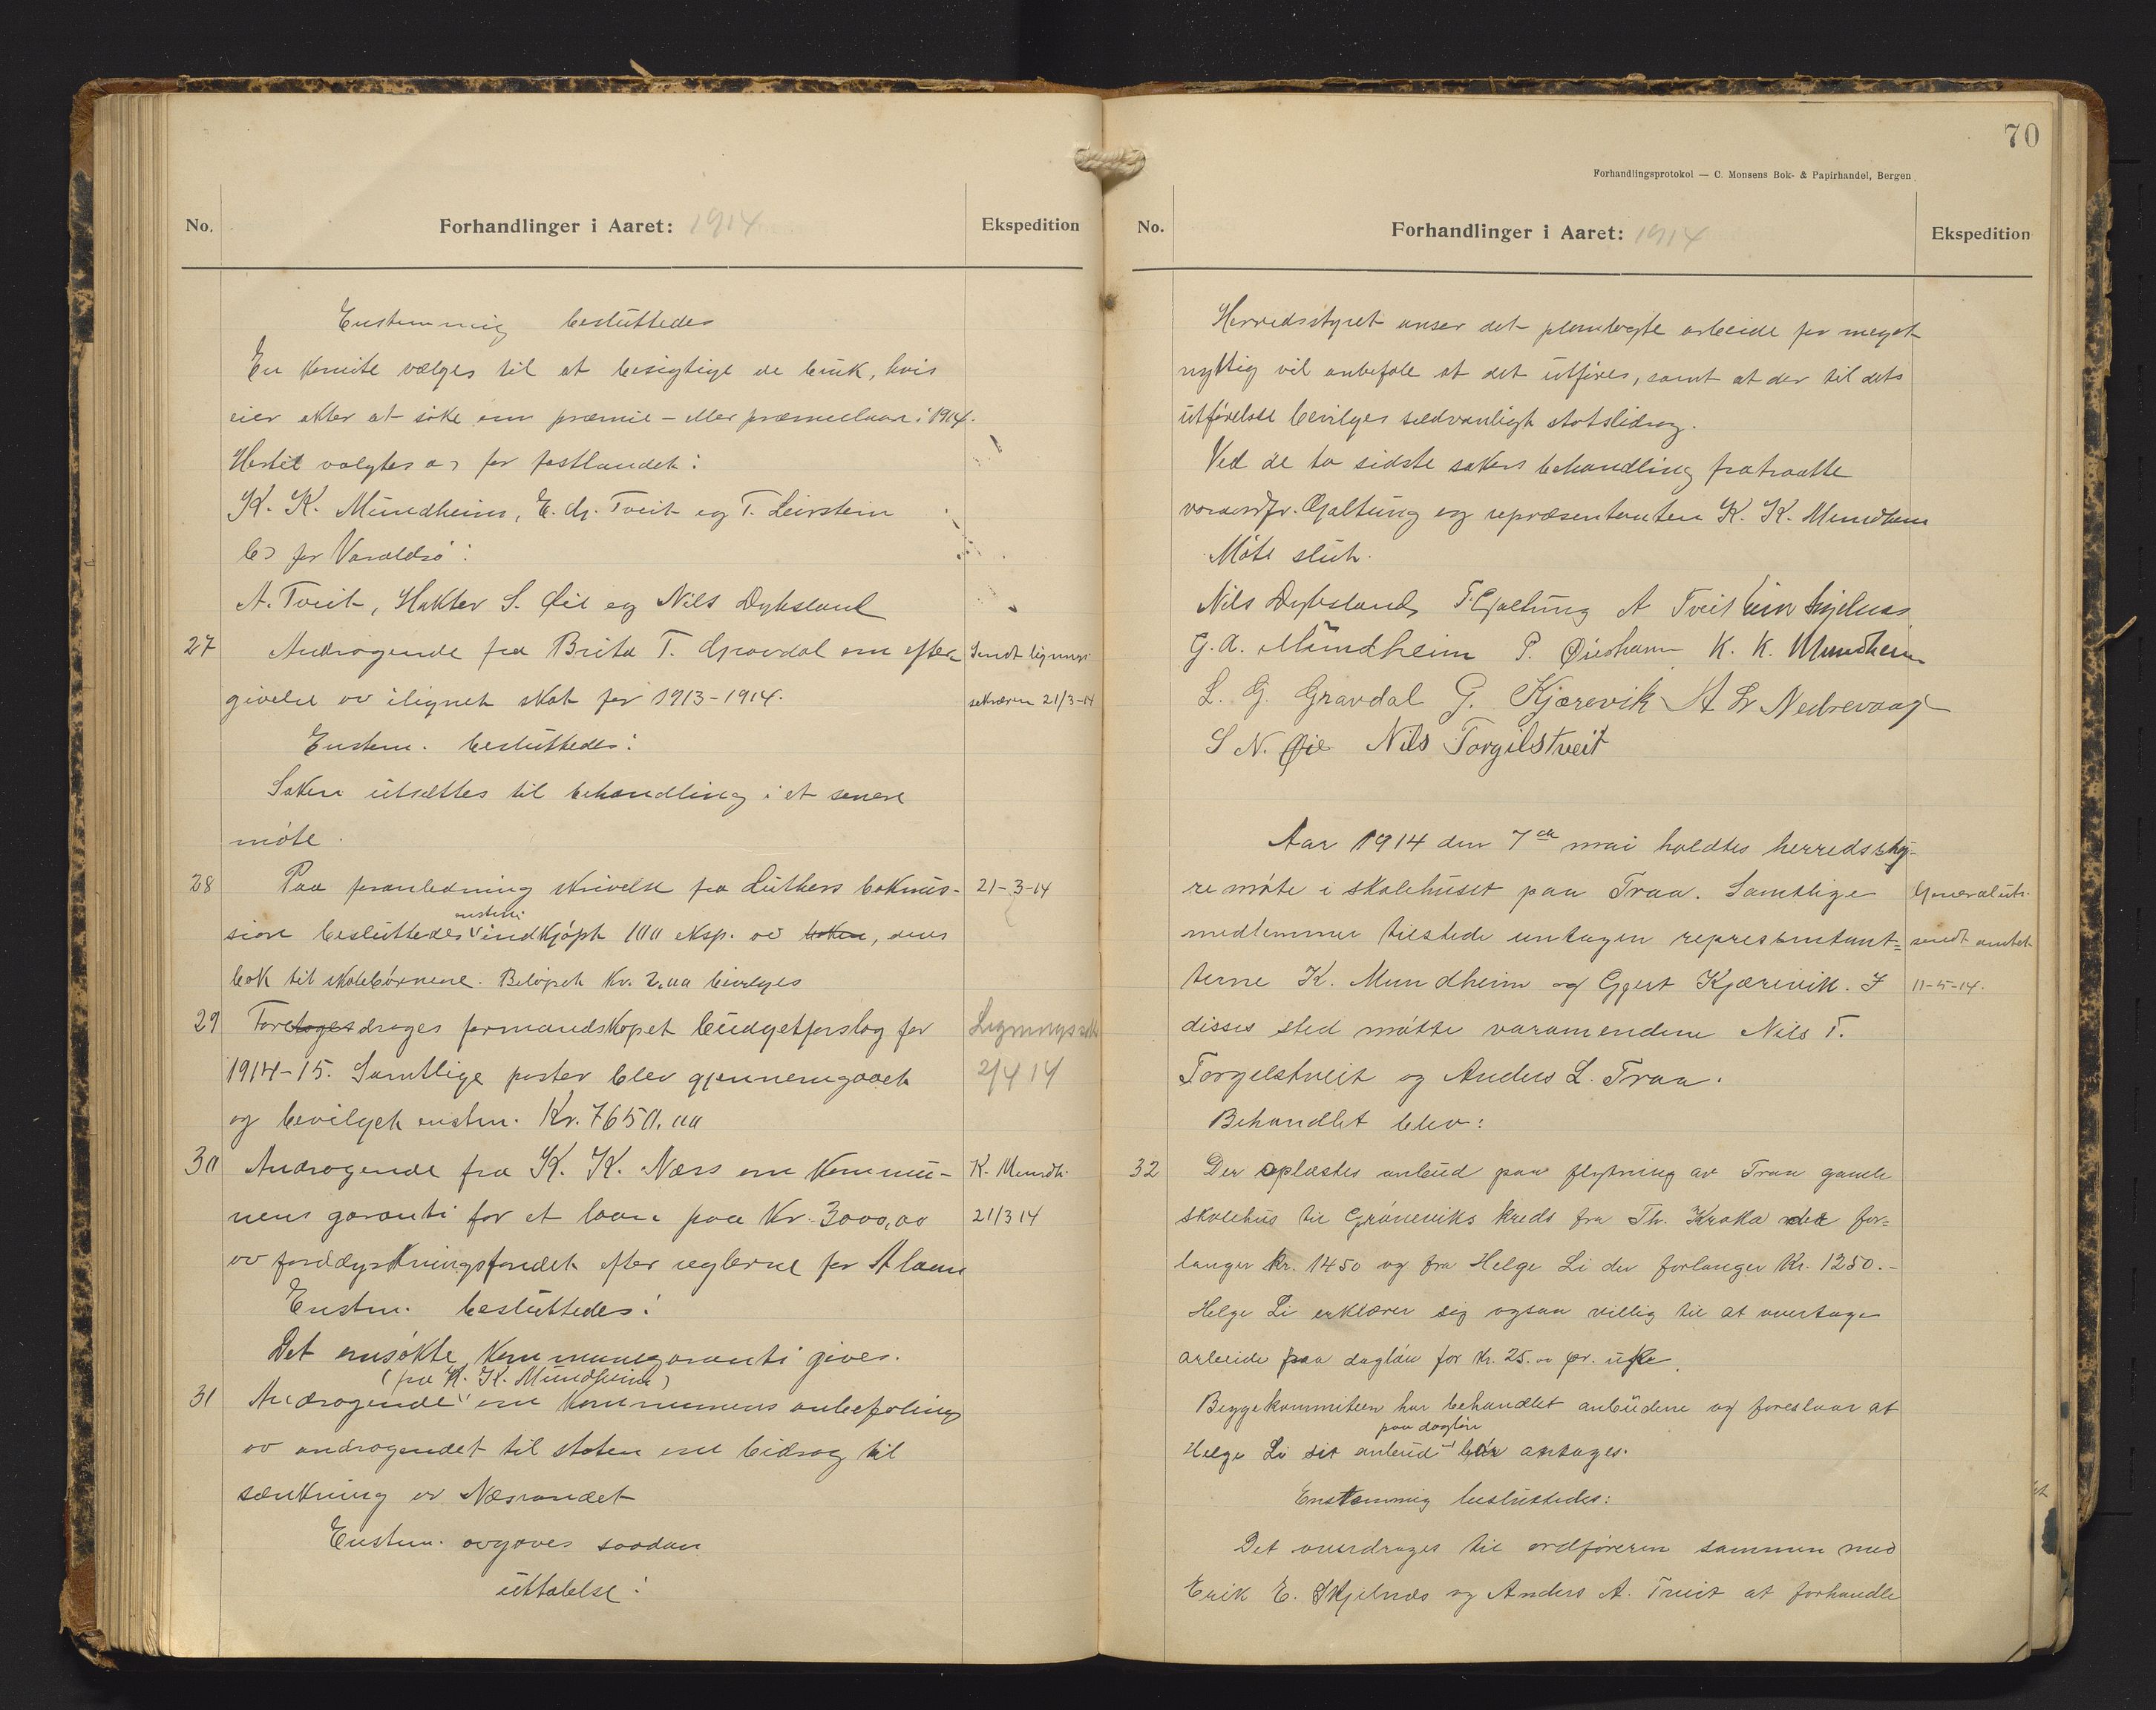 No.
Forhandlinger i Aaret: 1914
Ekspedition
Enstemmig besluttedes
En komite vælges til at besigtige de bruk, hvis
eier akter at søke om præmie- eller præmielaan i 1914.
Hertil valgtes a) for fastlandet:
K. K. Mundheim, E. G. Tveit og T. Leirstein
b) for Varaldsø:
A. Tveit, Halktor S. Øie og Nils Dybsland
27 Andragende fra Brita T. Gravdal om efter-
Sendt lignings
givelse av ilignet skat for 1913-1914.
sekræren 21/3-14
Enstem. besluttedes:
Saken utsættes til behandling i et senere
møte.
28 Paa foranledning skrivelse fra Luthers bokmis-
21-3-14
enstem.
sion besluttedes indkjøpt 100 eksp. av boken, denes
bok til skolebørnene. Beløpet kr. 2,00 bevilges
29 Foretoges drages formandskapet budgetforslag for
Ligningssek
1914-15. Samtlige poster blev gjennemgaaet
2/4 14
og bevilget enstem. Kr. 7650,00
30 Andragende fra K. K. Næs om kommu-
K. Mundh.
nens garanti for et laan paa Kr. 3000,00
21/3 14
av jorddyrkningsfondet efter reglerne for A laan
Enstem. besluttedes:
Det ansøkte kommunegaranti gives.
(fra K. K. Mundheim)
31 Andragende om kommunens anbefaling
av andragendet til staten om bidrag til
sænkning av Næsvandet
Enstem. avgaves saadan
uttalelse:
70
Forhandlingsprotokol — C. Monsens Bok- & Papirhandel, Bergen
No.
Forhandlinger i Aaret: 1914
Ekspedition
Herredsstyret anser det planlagte arbeide for meget
nyttig vil anbefale at det utføres, samt at der til dets
utførelse bevilges sedvanligt statsbidrag.
Ved de to sidste sakers behandling fratraatte
varaordfr. Galtung og repræsentanten K. K. Mundheim
Møte slut.
Nils Dybsland T. Galtung A Tveit Skjelnes
G. A. Mundheim P. Øieshamn K. K. Mundheim
L. G. Gravdal G. Kjærevik A Nedrevaag
S N. Øie Nils Torgilstveit
Aar 1914 den 7de mai holdtes herredssty-
re møte i skolehuset paa Traa. Samtlige
Generaluts.
medlemmer tilstede untagen represantant-
sendt amtet
terne K. Mundheim og Gjert Kjærevik. I
11-5-14.
disses sted møtte varamendene Nils T.
Torgelstveit og Anders L. Traa.
Behandlet blev:
32 Der oplæstes anbud paa flytning av Traa gamle
skolehus til Grøneviks kreds fra Th. Kraka der for-
langer kr. 1450 og fra Helge Li der forlanger Kr. 1250.-
Helge Li erklærer sig ogsaa villig til at overtage
arbeide paa dagløn for Kr. 25.00 pr. uke.
Byggekommiteen har behandlet anbudene og foreslaar at
paa dagløn
Helge Li sit anbud bør antages.
Enstemmig besluttedes:
Det overdrages til ordføreren sammen med
Erik E. Skjelnes og Anders A. Tveit at forhandle